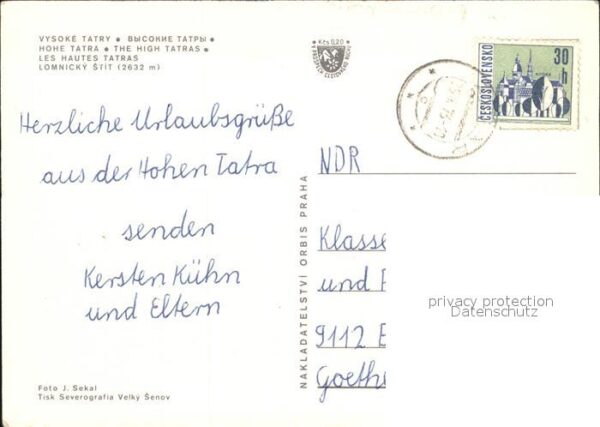 VYSOKÉ TATRY • ВЫСОКИЕ ТАТРЫ •
HOHE TATRA • THE HIGH TATRAS •
LES HAUTES TATRAS
LOMNICKÝ ŠTÍT (2632 m)
Kčs 0,20
ČESKOSLOVENSKO
30 h
Herzliche Urlaubsgrüße
aus der Hohen Tatra
senden
Kersten Kühn
und Eltern
NDR
Klasse
und
9112
Goethe
privacy protection
Datenschutz
NAKLADATELSTVÍ ORBIS PRAHA
Foto J. Sekal
Tisk Severografia Velký Šenov